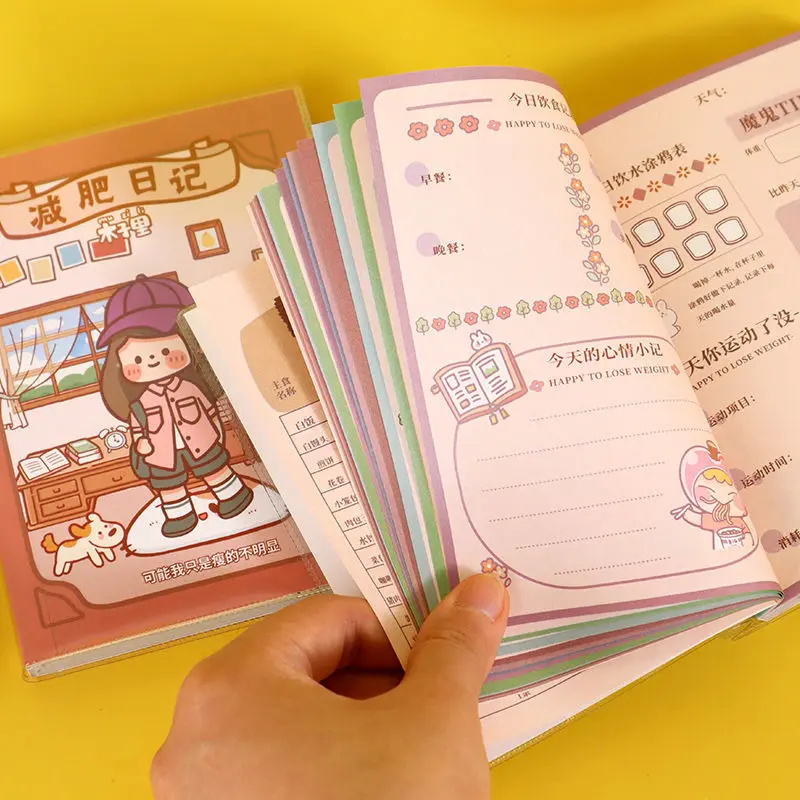 减肥日记
木子里
可能我只是瘦的不明显
主食
名称
白饭
白馒头
煎饼
花卷
小笼包
肉包
水饺
今日饮食记
HAPPY TO LOSE WEIG
早餐：
晚餐：
今天的心情小记
HAPPY TO LOSE WEIGHT
天气：
魔鬼TI
体重：
日饮水涂鸦表
比昨天
喝掉一杯水，在杯子里
涂鸦好做下记录，记录下每
天的喝水量
天你运动了没
HAPPY TO LOSE WEIGHT
运动项目：
运动时间：
消耗